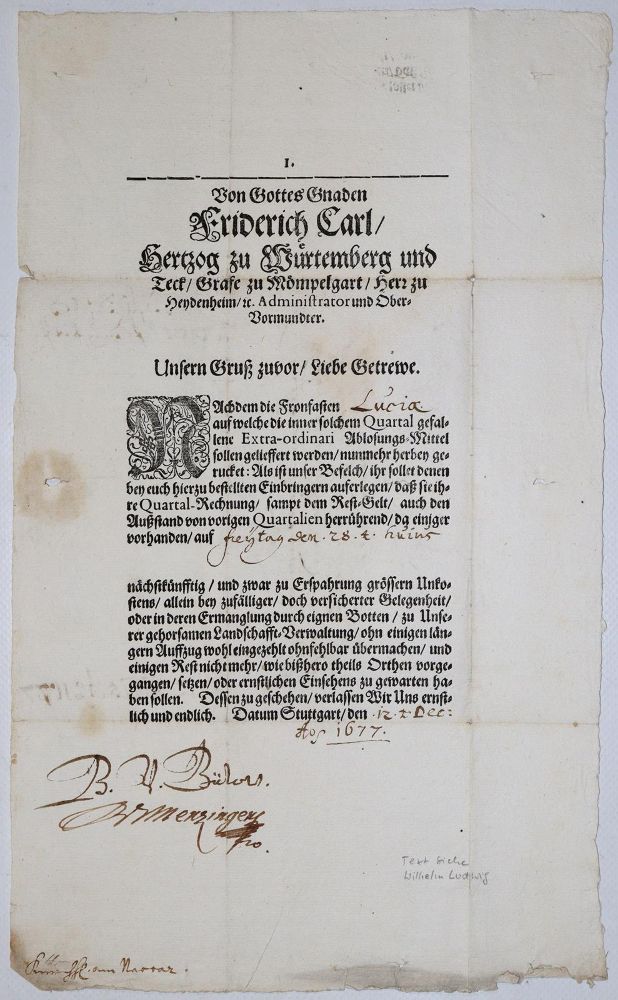 I.
Von Gottes Gnaden
Friderich Carl/
Hertzog zu Würtemberg und
Teck/ Grafe zu Mömpelgart/ Herr zu
Heydenheim/ ꝛc. Administrator und Ober-
Vormundter.
Unsern Gruß zuvor/ Liebe Getrewe.
NAchdem die Fronfasten Luciæ
auf welche die inner solchem Quartal gefal-
lene Extra-ordinari Ablosungs-Mittel
sollen gelieffert werden/ nunmehr herbey ge-
rucket: Als ist unser Befelch/ ihr sollet denen
bey euch hierzu bestellten Einbringern auferlegen/ daß sie ih-
re Quartal-Rechnung/ sampt dem Rest-Gelt/ auch den
Außstand von vorigen Quartalien herrührend/ da einiger
vorhanden/ auf freytag den 28.t. huius
nächstkünfftig/ und zwar zu Erspahrung grössern Unko-
stens/ allein bey zufälliger/ doch versicherter Gelegenheit/
oder in deren Ermanglung durch eignen Botten/ zu Unse-
rer gehorsamen Landschafft-Verwaltung/ ohn einigen län-
gern Auffzug wohl eingezehlt ohnfehlbar übermachen/ und
einigen Rest nicht mehr/ wie bißhero theils Orthen vorge-
gangen/ setzen/ oder ernstlichen Einsehens zu gewarten ha-
ben sollen. Dessen zu geschehen/ verlassen Wir Uns ernst-
lich und endlich. Datum Stuttgart/ den 12.t Dec:
Ao 1677.
B. V. Bülow.
Menzinger
Text siehe
Wilhelm Ludwig
am Neccar.